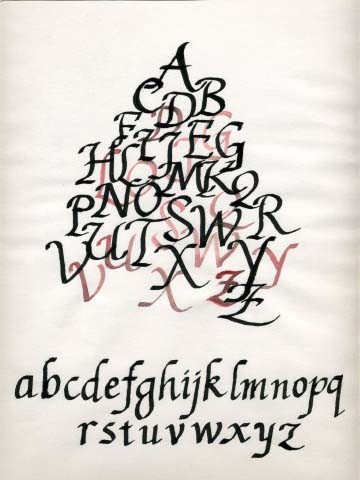 A
CDB
EG
H
MKQ
PNOSWR
VUTXY
Z
abcdefghijklmnopq
rstuvwxyz